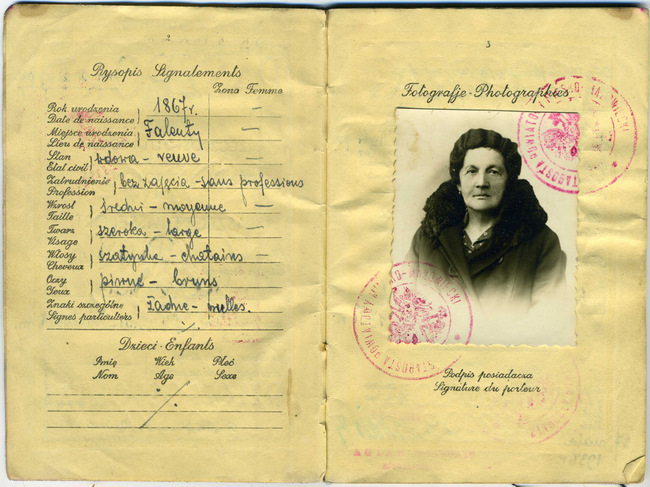 2
Rysopis Signalements
Żona Femme
Rok urodzenia 1867 r. —
Date de naissance
Miejsce urodzenia Falenty —
Lieu de naissance
Stan wdowa – veuve —
Etat civil
Zatrudnienie bez zajęcia – sans professions
Profession
Wzrost średni – moyenne —
Taille
Twarz szeroka – large
Visage
Włosy szatynka – chatains —
Cheveux
Oczy piwne – bruns
Yeux
Znaki szczególne Żadne –
Signes particuliers
Dzieci - Enfants
Imię Wiek Płeć
Nom Age Sexe
3
Fotografje - Photographies
STAROSTA POWIATOWY
STAROSTA POWIATOWY
Podpis posiadacza
Signature du porteur